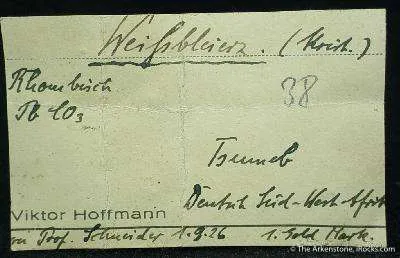 Weißbleierz.
Rhombisch
Pb CO3
38
Tsumeb
Deutsch Süd-West-Afrik
Viktor Hoffmann
Prof. Schneider 1.9.26 1. Gold Mark.
© The Arkenstone, iRocks.com